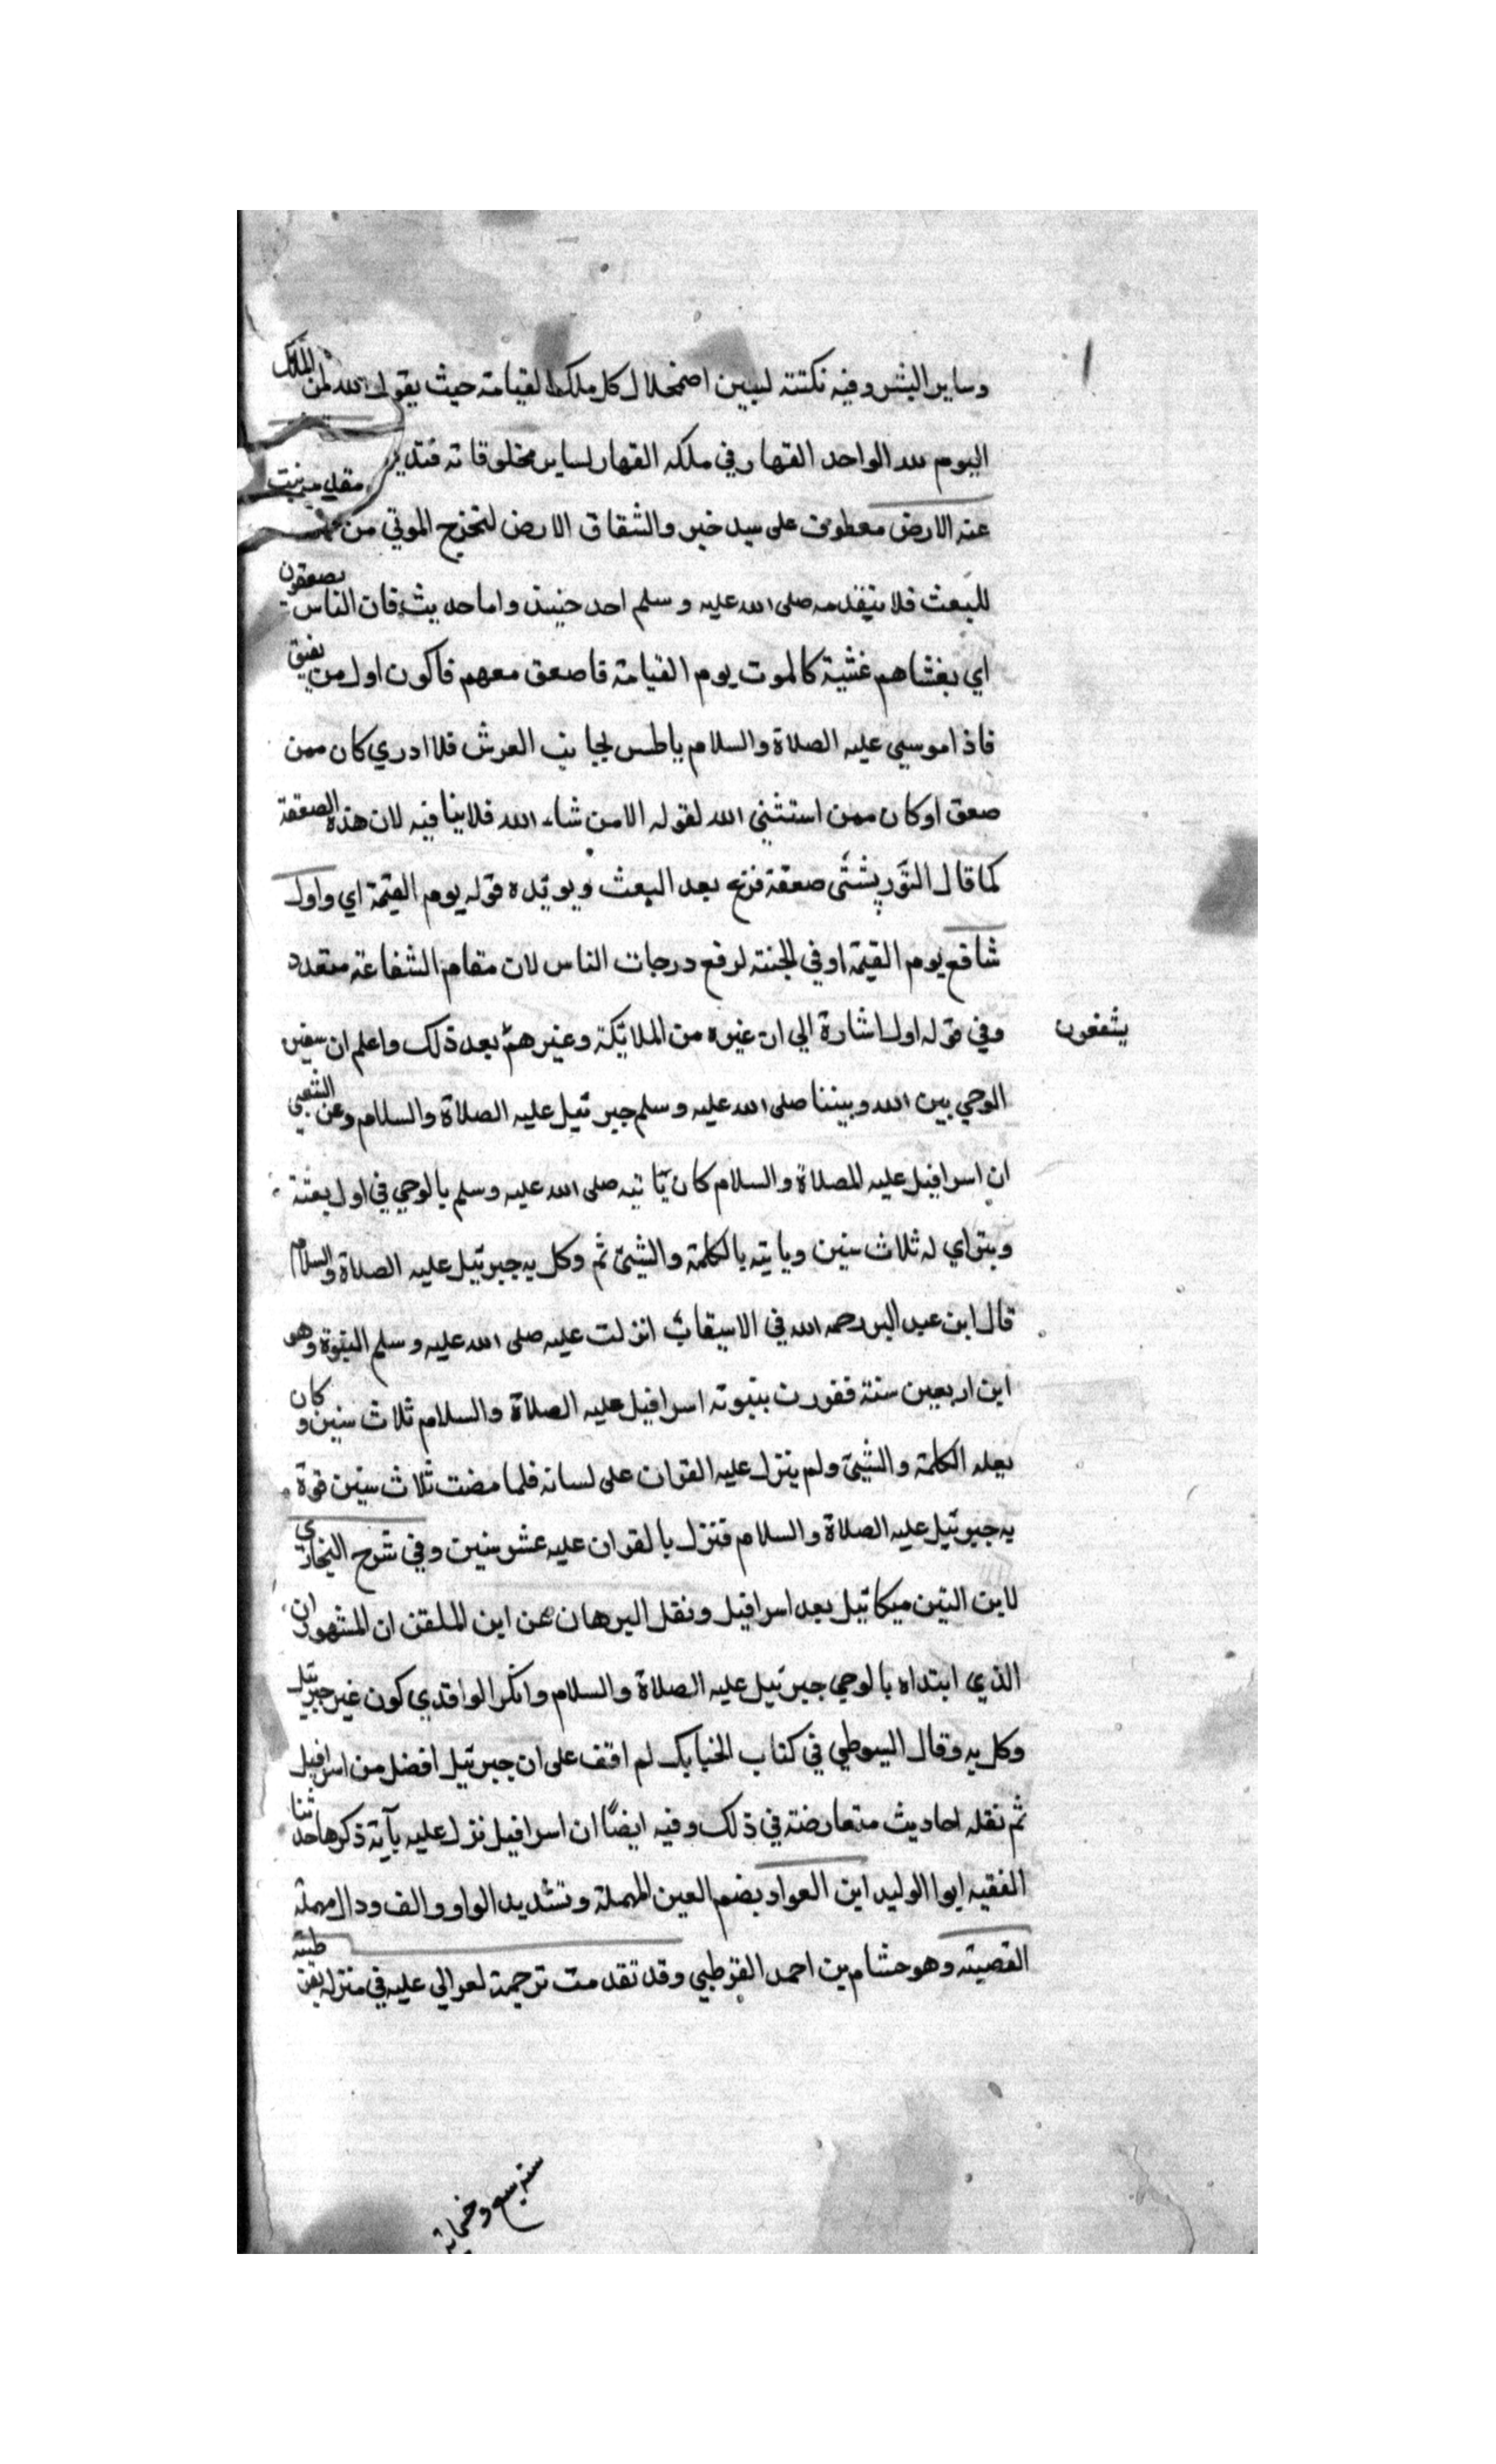 وساير البشر وفيه نكتته لبيين اضمحلال كل ملك القيامة حيث يقول الله لمن الملك
اليوم لله الواحد القهار في ملكه القهار لساير مخلوقاته
عنه الارض معطوف على سيد خبر والشقاق الارض لتخرج الموتي من
للبعث فلا يتقدمه صلى الله عليه وسلم احد حنيئذ واما حديث فان الناس يصعقون
اي يغشاهم غشية كالموت يوم القيامة فاصعق معهم فاكون اول من يفيق
فاذا موسي عليه الصلاة والسلام باطس بجانب العرش فلا ادري كان ممن
صعق او كان ممن استثني الله لقوله الا من شاء الله فلا ينافيه لان هذه الصعقة
كما قال التّورپشتّى صعقة فزع بعد البعث ويويّده قوله يوم القيمة اي واول
شافع يوم القيمة او في الجنة لرفع درجات الناس لان مقام الشفاعة متعدد
وفي قوله اول اشارة الي ان غيره من الملائكة وغيرهم بعد ذلك واعلم ان سفير
يشفعون
الوحي بين الله وبيننا صلى الله عليه وسلم جبرئيل عليه الصلاة والسلام وعن الشعبي
ان اسرافيل عليه الصلاة والسلام كان يأتيه صلى الله عليه وسلم بالوحي في اول بعثته
ويتراي له ثلاث سنين وياتيه بالكلمة والشيئ ثم وكل به جبرئيل عليه الصلاة والسلام
قال ابن عبد البر رحمه الله في الاسيقاب انزلت عليه صلى الله عليه وسلم النبوة وهو
ابن اربعين سنة فقورن بنبوته اسرافيل عليه الصلاة والسلام ثلاث سنين وكان
يعله الكلمة والشيئ ولم ينزل عليه القران على لسانه فلما مضت ثلاث سنين قرن
به جبرئيل عليه الصلاة والسلام فنزل بالقران عليه عشر سنين وفي شرح البخاري
لابن التين ميكائيل بعد اسرافيل ونقل البرهان عن ابن الملقن ان المشهور ان
الذي ابتداه بالوحي جبرئيل عليه الصلاة والسلام وانكر الواقدي كون غير جبرئيل
وكل به وقال السيوطي في كتاب الخبايك لم اقف على ان جبرئيل افضل من اسرافيل
ثم نقله احاديث متعارضة في ذلك وفيه ايضًا ان اسرافيل نزل عليه بآية ذكرها حدثنا
الفقيه ابوا الوليد ابن العواد بضم العين المهملة وتشديد الواو والف ودال مهملة
القصيته وهو هشام بن احمد القرطبي وقد تقدمت ترجمة لعوالي عليه في منزله
سنة سبع وخمسماية